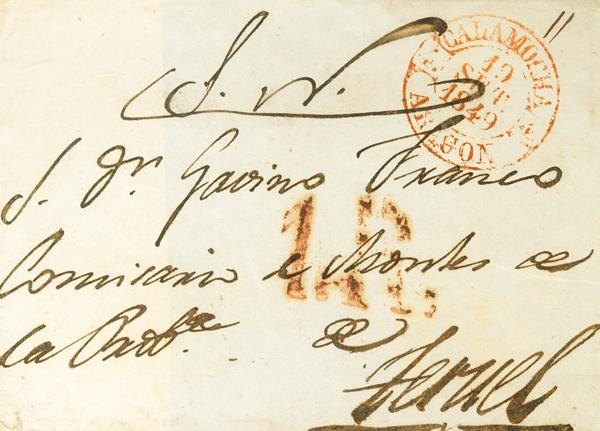 CALAMOCHA
19
SET
1849
ARAGON
S. N.
S. Dn. Gavino Franco
Comisario de Montes de
la Proba. de
1R.
Teruel